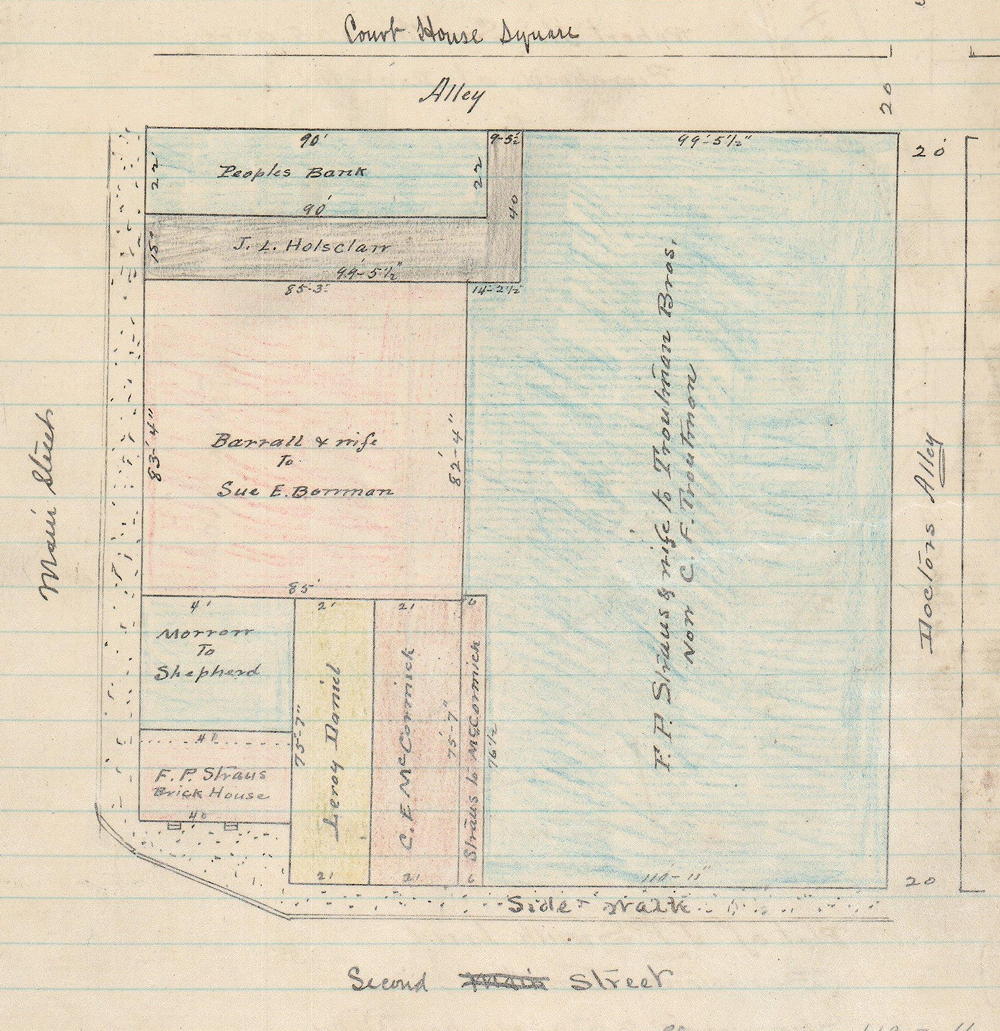 Court House Square
Alley
20
90' 9-5½ 99'-5½"
20
22' Peoples Bank 22
90' 40
15' J. L. Holsclaw
99'-5½"
85-3" 14-2½
F. P. Straus & wife to Troutman Bros.
Now C. F. Troutmon
Main Street
83'-4"
Barrall & wife
To
Sue E. Bowman
82'-4"
Doctors Alley
85'
41' 21' 21' 6
Morrow
To
Shepherd
75-7"
Leroy Daniel
C. E McCormick
75-7"
Straus to McCormick
76½
41
F. P. Straus
Brick House
40
21' 21' 6 110-11"
20
Side-walk
Second Main Street